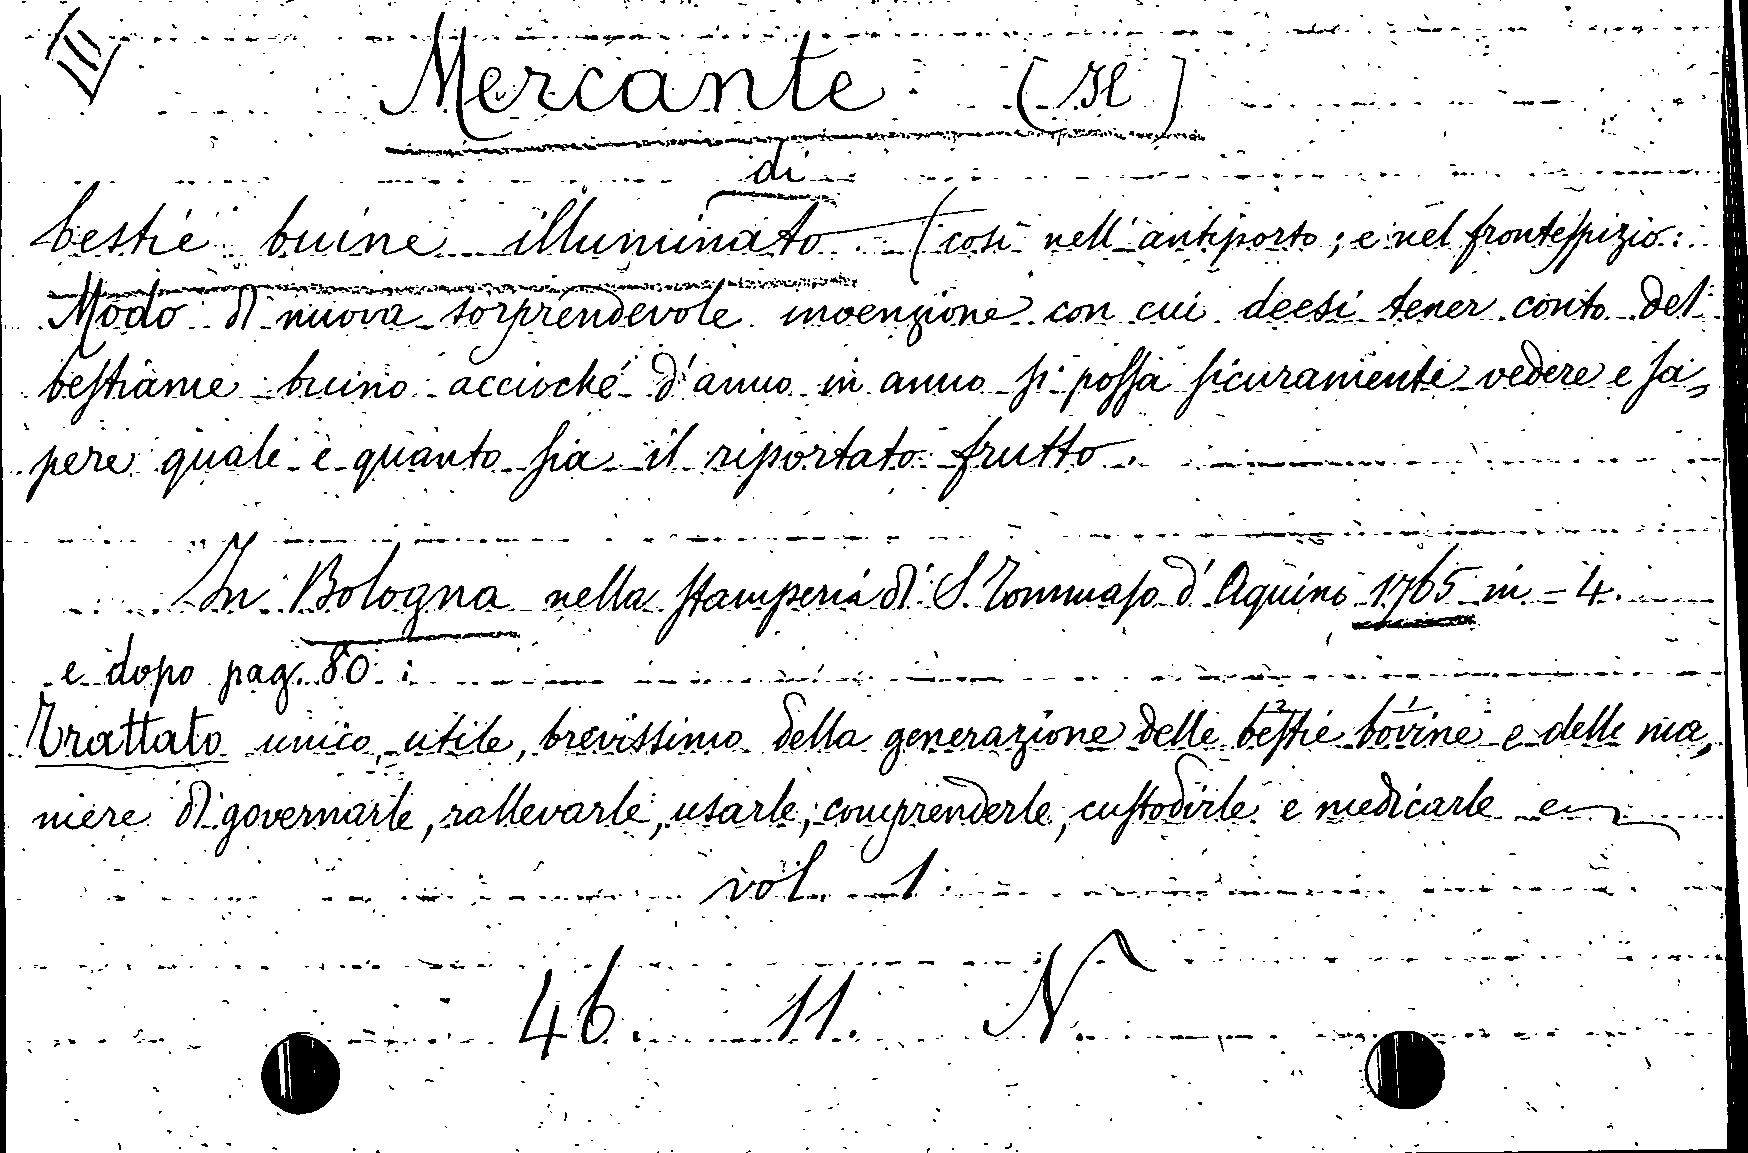 10
Mercante (Il)
di
bestie buine illuminato (così nell'antiporto; e nel frontespizio:
Modo di nuova sorprendevole invenzione con cui deesi tener conto del
bestiame buino acciocké d'anno in anno si possa sicuramente vedere e sa,
pere quale e quanto sia il riportato frutto.
In Bologna nella stamperia di S. Tommaso d'Aquino 1765 in-4.
e dopo pag. 80:
Trattato unico, utile, brevissimo della generazione delle bestie bovine e delle ma,
niere di governarle, rallevarle, usarle, comprenderle, custodirle e medicarle e
vol. 1
46. 11. N.